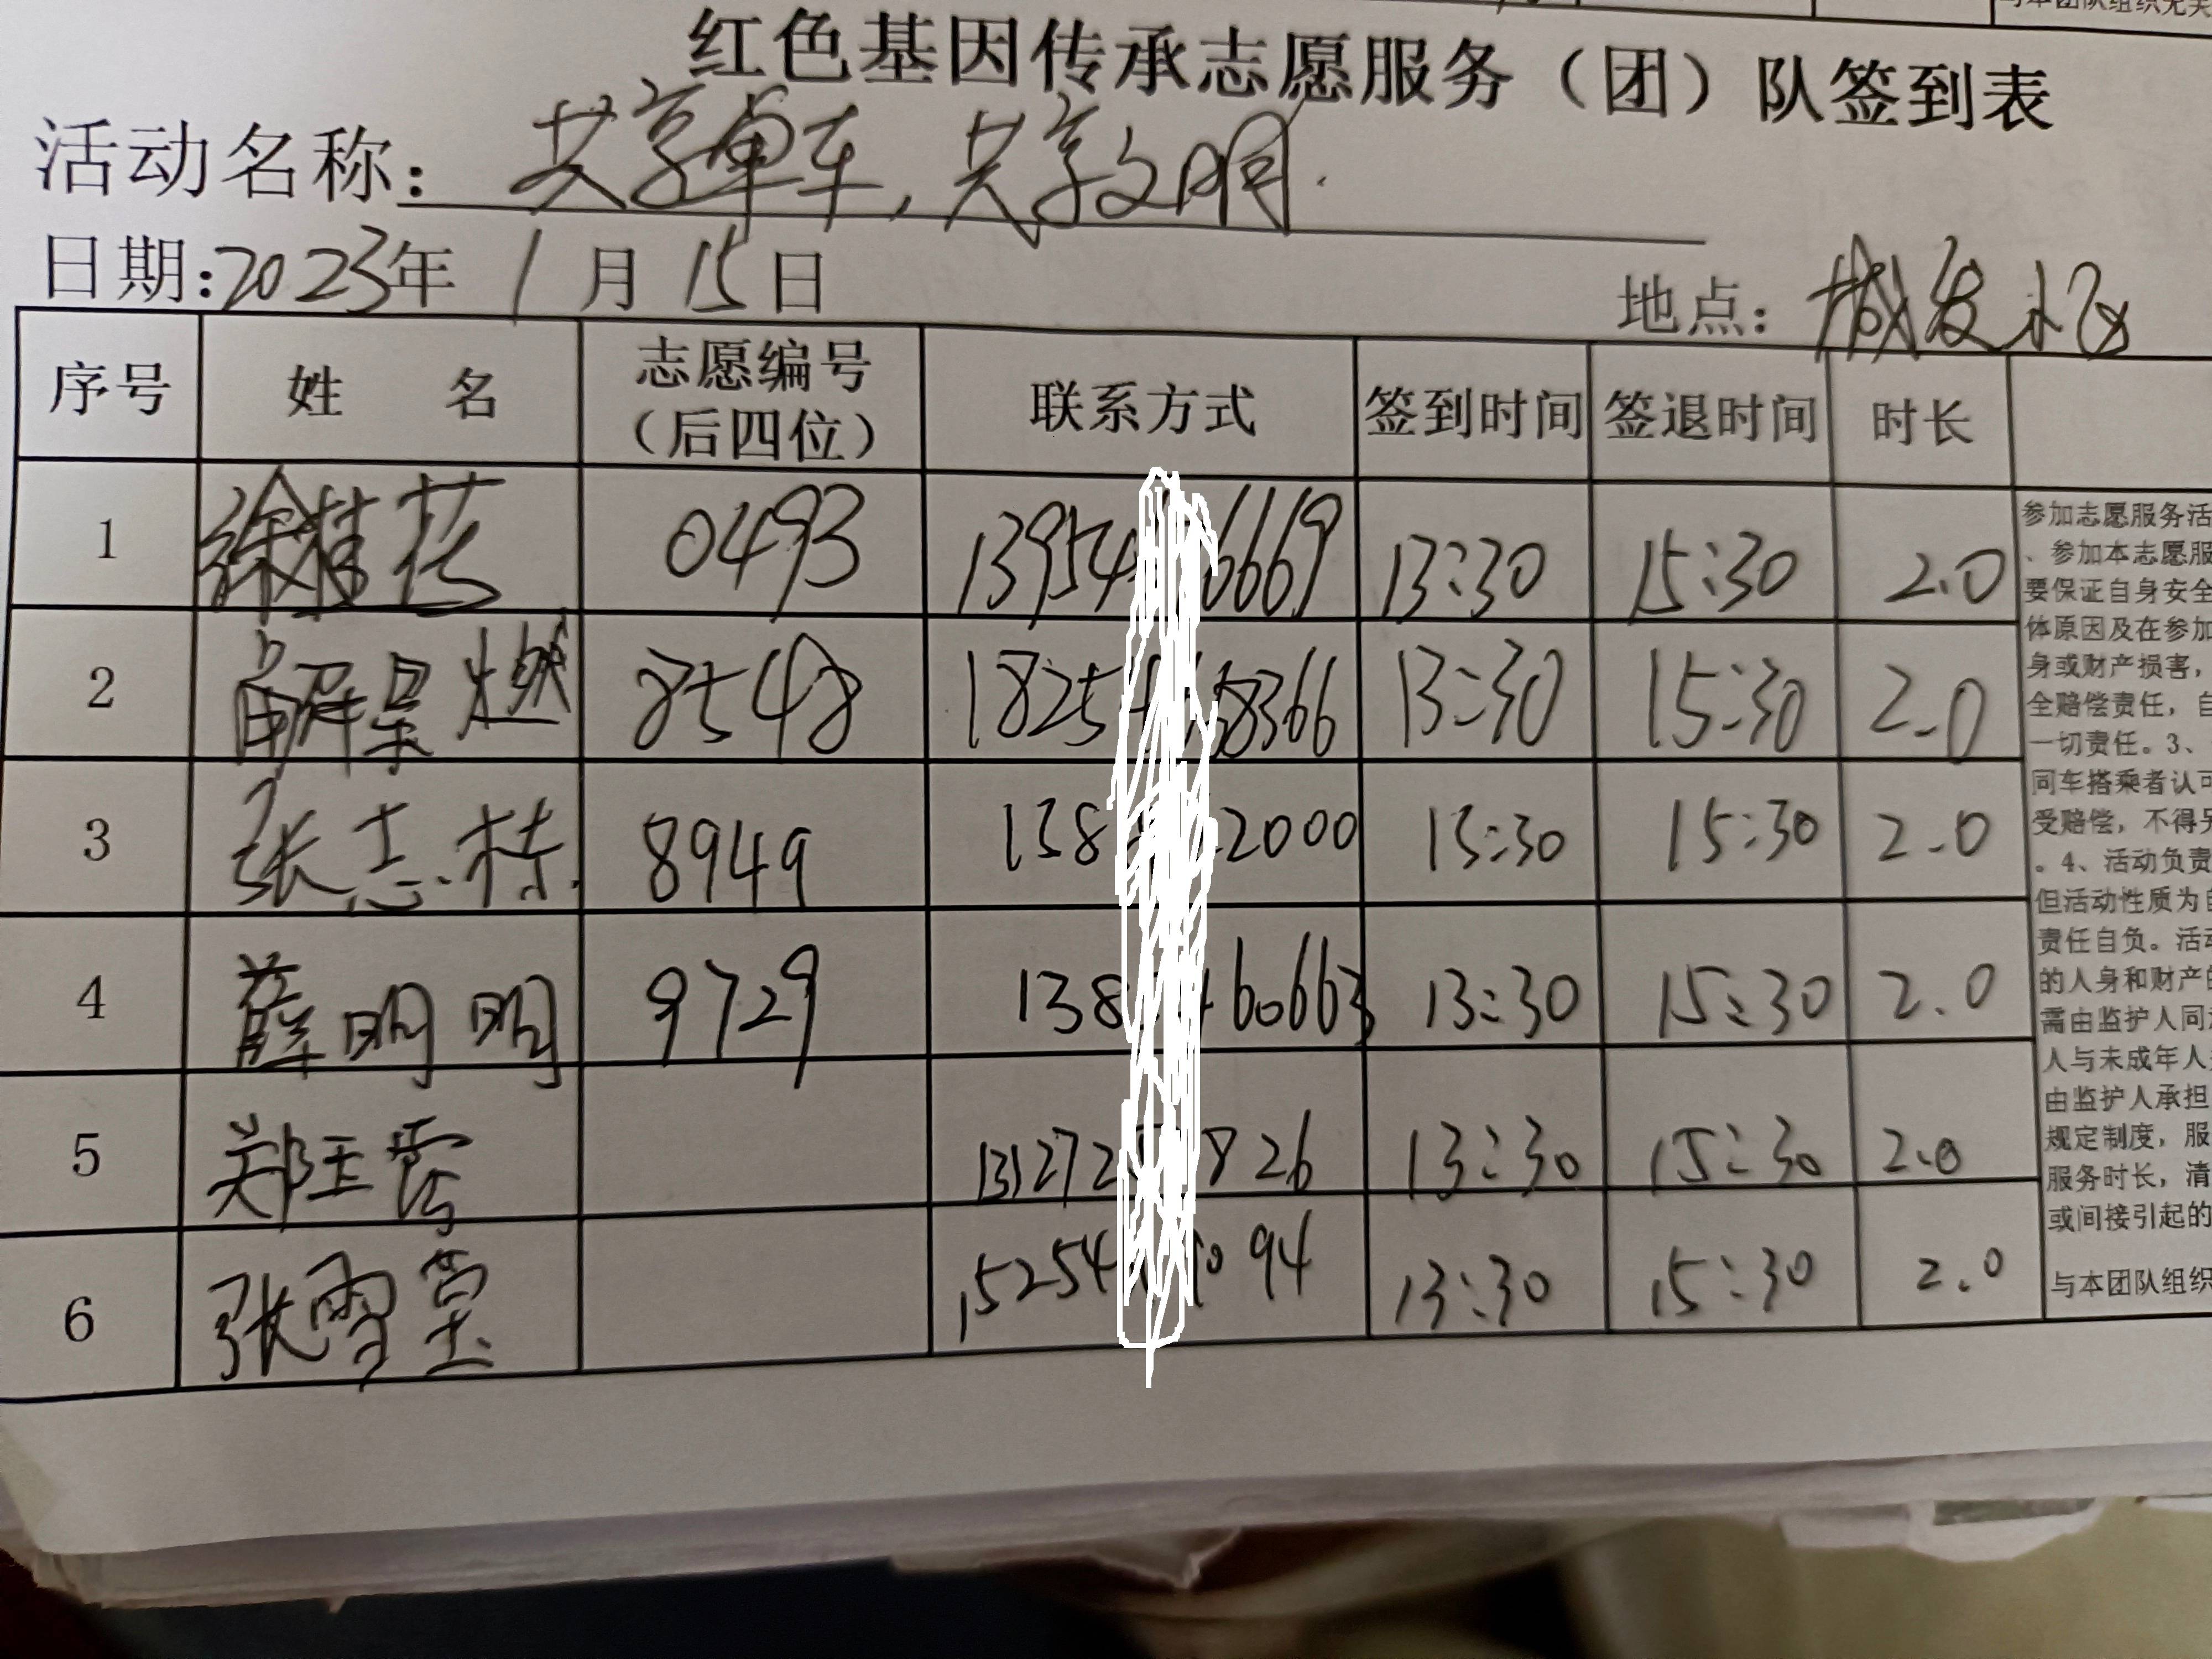 与本团队组织无关
红色基因传承志愿服务（团）队签到表
活动名称：共享单车，共享文明.
日期：2023年 1 月 15 日 地点：城发
序号 姓 名 志愿编号（后四位） 联系方式 签到时间 签退时间 时长
1 徐桂花 0493 13954 6669 13:30 15:30 2.0
2 解呈燃 8548 1825 8366 13:30 15:30 2.0
3 张志栋 8949 138 2000 13:30 15:30 2.0
4 薛明明 9729 138 60663 13:30 15:30 2.0
5 郑玉霞 131272 826 13:30 15:30 2.0
6 张雪莹 15254 94 13:30 15:30 2.0
参加志愿服务活
、参加本志愿服
要保证自身安全
体原因及在参加
身或财产损害，
全赔偿责任，自
一切责任。3、
同车搭乘者认可
受赔偿，不得另
。4、活动负责
但活动性质为自
责任自负。活动
的人身和财产的
需由监护人同
人与未成年人
由监护人承担
规定制度，服
服务时长，清
或间接引起的
与本团队组织